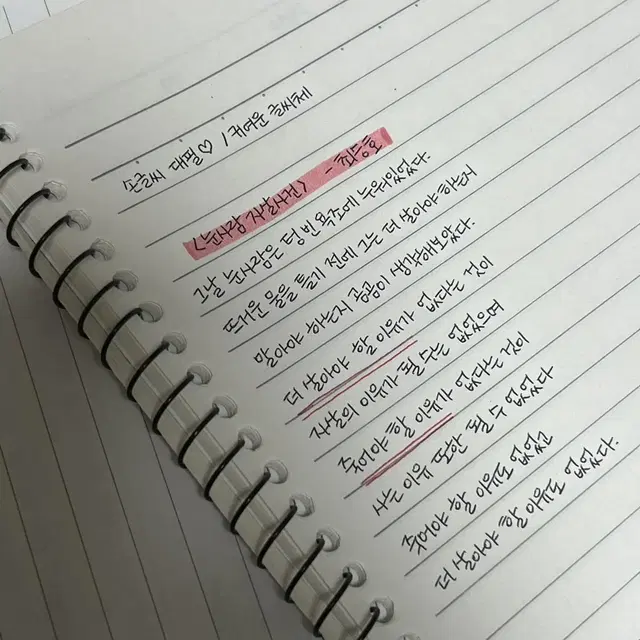 손글씨 대필♡ / 귀여운 글씨체
<눈사람 자살사건> - 최승호
그날 눈사람은 텅 빈 욕조에 누워있었다.
뜨거운 물을 틀기 전에 그는 더 살아야 하는지
말아야 하는지 곰곰이 생각해보았다.
더 살아야 할 이유가 없다는 것이
자살의 이유가 될 수는 없었으며
죽어야 할 이유가 없다는 것이
사는 이유 또한 될 수 없었다
죽어야 할 이유도 없었고
더 살아야 할 이유도 없었다.